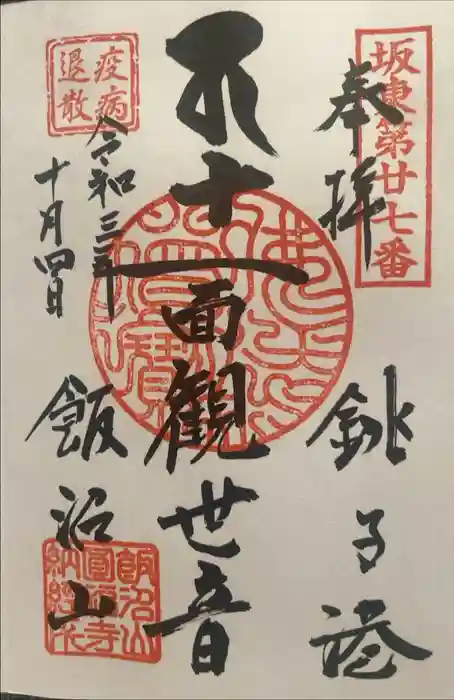 坂東第廿七番
奉拝
銚子港
十一面観世音
疫病
退散
令和三年
十月四日
飯沼山
飯沼山
圓福寺
納経所